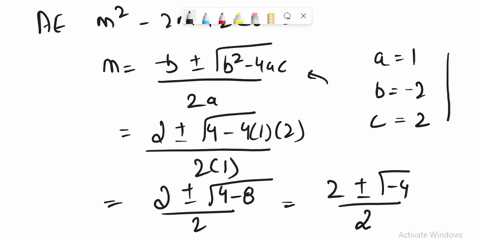 AE m² - 2
m = -b ± √b²-4ac / 2a
a = 1
b = -2
c = 2
= 2 ± √4 - 4(1)(2) / 2(1)
= 2 ± √4-8 / 2 = 2 ± √-4 / 2
Activate Windows